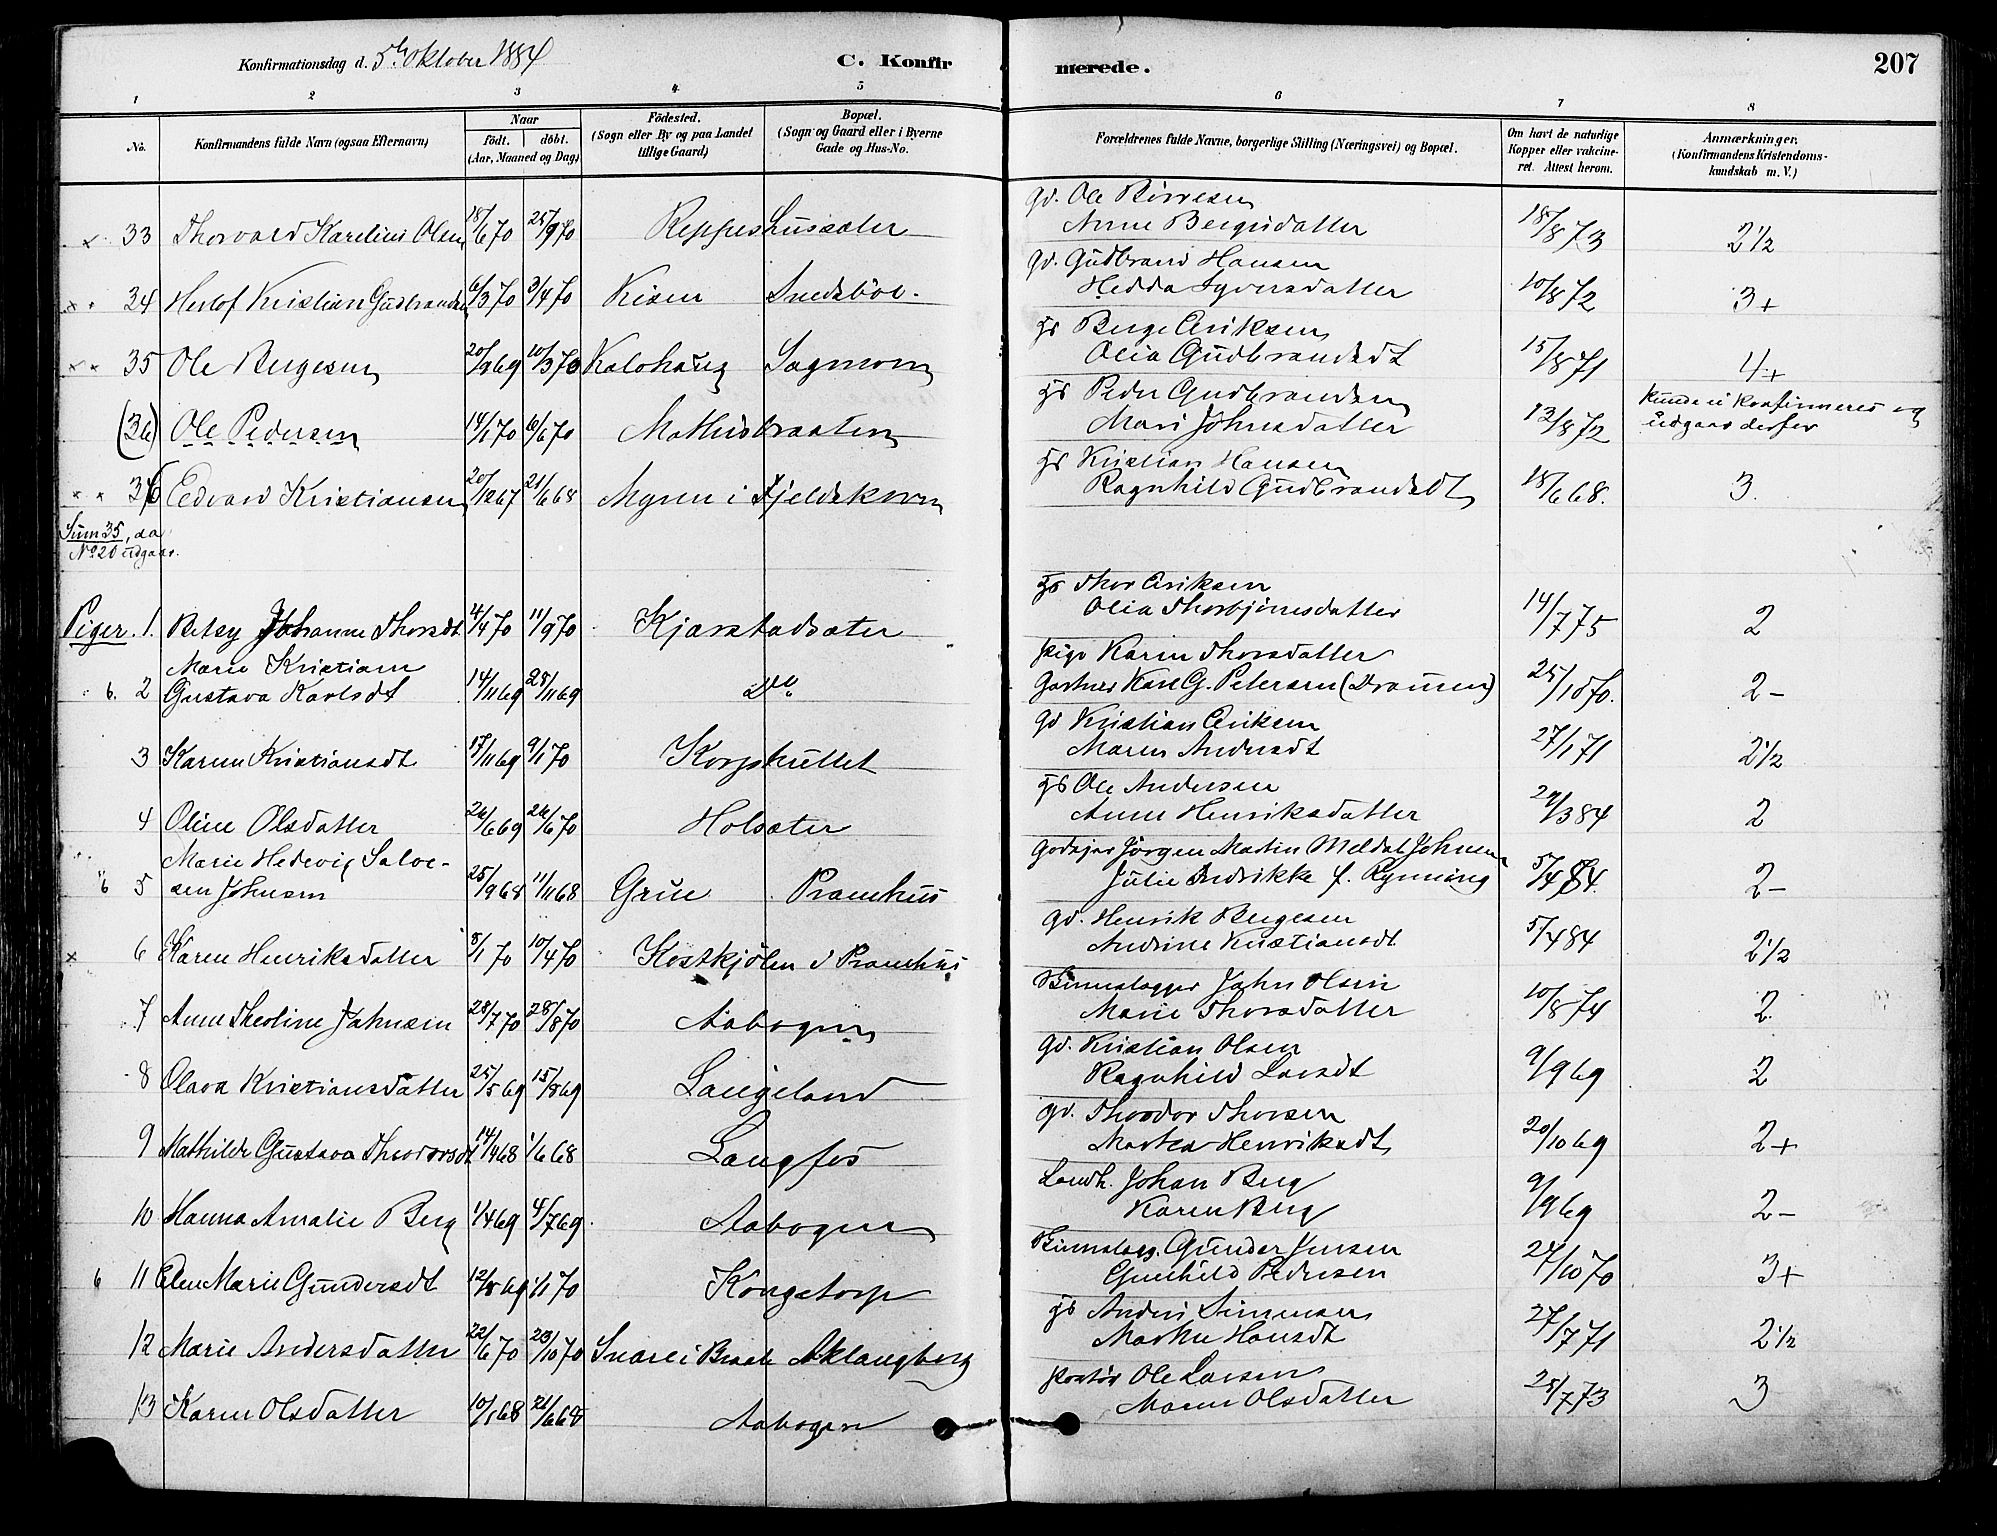 Konfirmationsdag d. 5te Oktober 1884 C. Konfirmerede. 207
1 2 3 4 5 6 7 8
No. Konfirmandens fulde Navn (ogsaa Efternavn) Naar födt. döbt. (Aar, Maaned og Dag) Födested. (Sogn eller By og paa Landet tillige Gaard) Bopæl. (Sogn og Gaard eller i Byerne Gade og Hus-No. Forældrenes fulde Navne, borgerlige Stilling (Næringsvei) og Bopæl. Om havt de naturlige Kopper eller vakcineret. Attest herom. Anmærkninger. (Konfirmandens Kristendomskundskab m. V.)
Gd. Ole
33 Thorvald Karelius Olsen 18/6 70 25/9 70 Reppeshussæter Anne Bergesdatter 18/8 73 2 1/2
Gd. Gudbrand Hansen
34 Herlof Kristian Gudbrandsen 6/3 70 3/4 70 Kisen Snedsböl. Hedda Syversdatter 10/8 72 3+
Hs Berge Eriksen
35 Ole Bergesen 10/3 70 Kalohaug Sagmoen Olia Gudbrandsdt 15/8 71 4+
Hs Peder Gudbrandsen
(36) Ole Pedersen 14/1 70 6/6 70 Mathisbraaten Mari Johnsdatter 13/8 72 Kunde ei konfirmeres og udgaar derfor
Hs Kristian Hansen
36 Edvard Kristiansen 20/12 67 21/6 68 Myren i Fjeldskoven Ragnhild Gudbrandsdt 18/6 68. 3.
Sum 35, da
No 20 udgaar.
Hs Thor Eriksen
Piger. 1. Betsy Johanne Thorsdt 4/4 70 11/9 70 Kjærstadsæter Olia Thorbjörnsdatter 14/7 75 2
Marie Kristiane Pige Karen Thorsdatter
6. 2 Gustava Karlsdt 14/11 69 28/11 69 Do Gartner Karl G. Petersen (Drammen) 25/10 70. 2-
Gd Kristian Eriksen
3 Karen Kristiansdt 17/11 69 9/1 70 Korpskullet Maren Andersdt 27/1 71 2 1/2
Hs Ole Andersen
4 Oline Olsdatter 26/6 69 26/6 70 Holsæter Anne Henriksdatter 29/3 84 2
Marie Hedevig Salve- Godsejer Jörgen Martin Meldal Johnsen
6 5 sen Johnsen 25/9 68 11/11 68 Grue Pramhus Julie Fredrikke f. Rynning 5/4 84. 2-
Gd. Henrik Bergesen
6 Karen Henriksdatter 8/1 70 10/4 70 Kostkjölen i Pramhus Andrine Kristiansdt 5/4 84 2 1/2
John Olsen
7 Anne Theoline Johnsen 28/7 70 28/8 70 Aabogen Marie Thorsdatter 10/8 74 2.
Gd. Kristian Olsen
8 Olava Kristiansdatter 25/5 69 15/8 69 Langeland Ragnhild Larsdt 9/9 69 2
Gd. Theodor Thorsen
9 Mathilde Gustava Theodorsdt 14/4 68 1/6 68 Langfos Marthea Henriksdt 20/10 69 2+
Landh. Johan Berg
10 Hanna Amalie Berg 1/4 69 4/7 69 Aabogen Karen Berg 9/9 69 2-
Gunder Jensen
6 11 Elen Marie Gundersdt 12/8 69 1/1 70 Kongstorp Gunhild Pedersen 27/10 70 3+
Hs Anders Simensen
12 Marie Andersdatter 22/6 70 23/10 70 Snare i Aklangberg Marthe Hansdt 27/7 71 2 1/2
Ole Larsen
13 Karen Olsdatter 10/1 68 21/6 68 Aabogen Maren Olsdatter 25/7 73 3